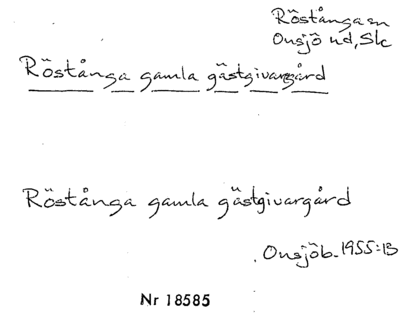 Röstånga sn
Onsjö hd, Sk
Röstånga gamla gästgivargård
Röstånga gamla gästgivargård
Onsjöb. 1955:13
Nr 18585